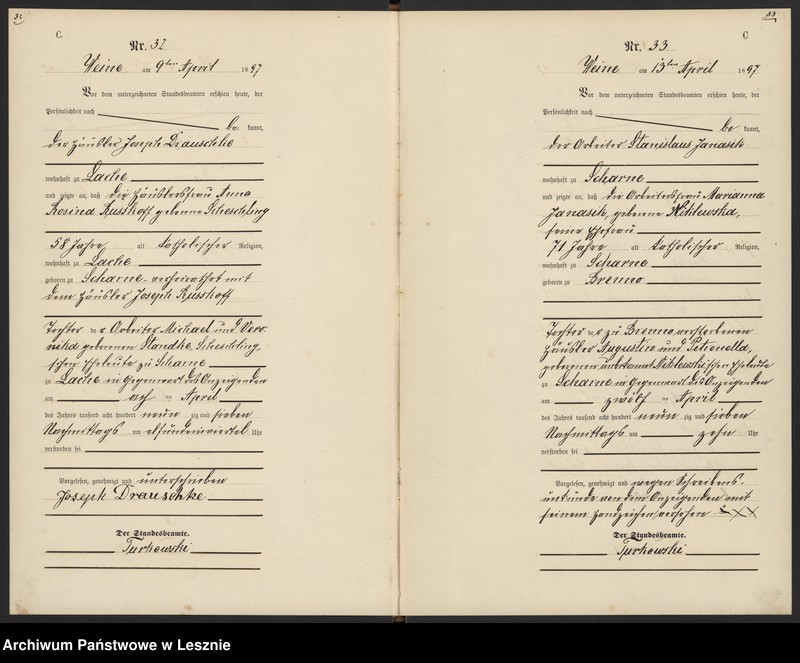 32
C.
Nr. 32
Weine am 9ten April 1897
Vor dem unterzeichneten Standesbeamten erschien heute, der
Persönlichkeit nach
be kannt,
der Häusler Joseph Drauschke
wohnhaft zu Lache
und zeigte an, daß die Häuslersfrau Anna
Rosina Russkoff geborene Scheschling
58 Jahre alt katholischer Religion,
wohnhaft zu Lache
geboren zu Scharne verheirathet mit
dem Häusler Joseph Russkoff
Tochter der Arbeiter Michael und Vero-
nika geborenen Standke, Scheschling,
schen Eheleute zu Scharne
zu Lache in Gegenwart des Anzeigenden
am acht ten April
des Jahres tausend acht hundert neun zig und sieben
Nachmittags um elfundeinviertel Uhr
verstorben sei
Vorgelesen, genehmigt und unterschrieben
Joseph Drauschke
Der Standesbeamte.
Turkowski
33
C
Nr. 33
Weine am 13ten April 1897
Vor dem unterzeichneten Standesbeamten erschien heute, der
Persönlichkeit nach
be kannt,
der Arbeiter Stanislaus Janasik
wohnhaft zu Scharne
und zeigte an, daß die Arbeitersfrau Marianna
Janasik, geborene Niklewska,
seine Ehefrau
71 Jahre alt katholischer Religion,
wohnhaft zu Scharne
geboren zu Brenno
Tochter der zu Brenno verstorbenen
Häusler Augustin und Petronella,
geborenen unbekannt Niklewski'schen Eheleute
zu Scharne in Gegenwart des Anzeigenden
am zwölf ten April
des Jahres tausend acht hundert neun zig und sieben
Nachmittags um zehn Uhr
verstorben sei
Vorgelesen, genehmigt und wegen Schreibens-
unkunde von dem Anzeigenden mit
seinem Handzeichen versehen XXX
Der Standesbeamte.
Turkowski
Archiwum Państwowe w Lesznie